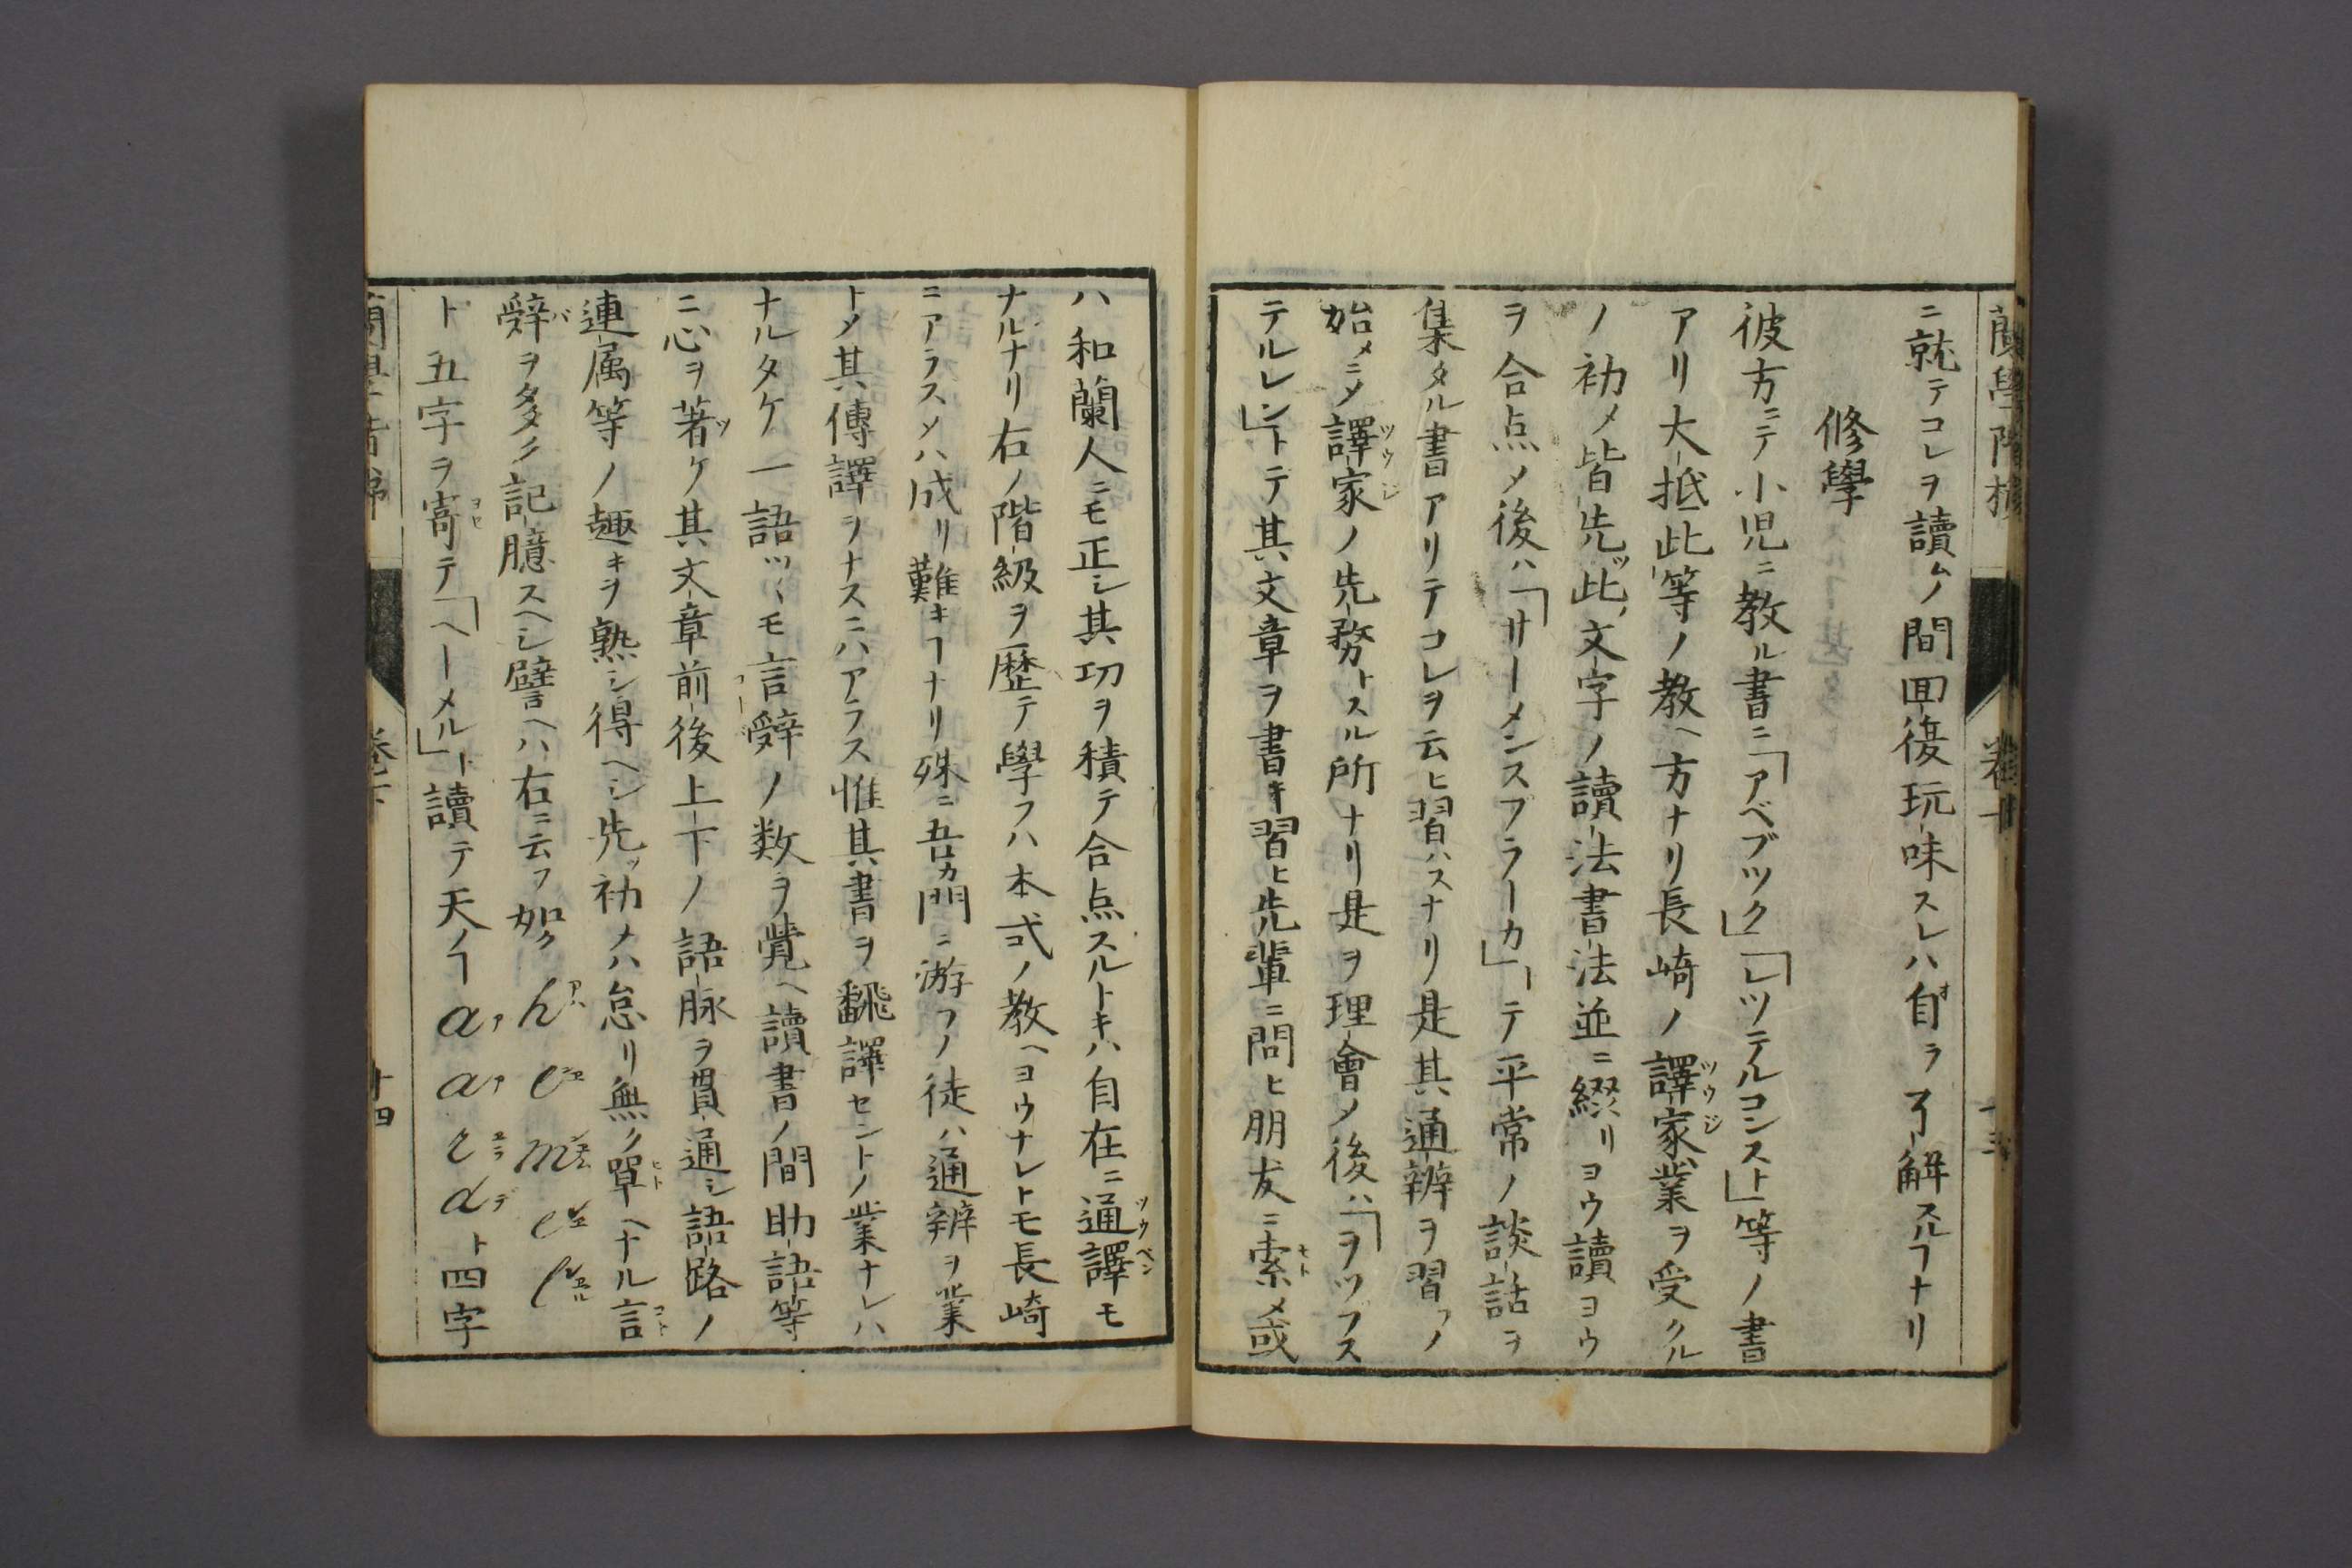 蘭學階梯 卷下
ニ就テコレヲ讀ムノ間囬復玩味スレハ自ラ了解スルヿナリ
修學
彼方ニテ小児ニ教ル書ニ「アベブック」「レッテルコンスト」等ノ書
アリ大抵此等ノ教ヘ方ナリ長崎ノ譯家業ヲ受クル
ノ初メ皆先ツ此ノ文字ノ讀法書法並ニ綴リヨウ讀ヨウ
ヲ合点メ後ハ「サーメンスプラーカ」トテ平常ノ談話ヲ
集タル書アリテコレヲ云ヒ習ハスナリ是其通辨ヲ習フノ
始メニメ譯家ノ先務トスル所ナリ是ヲ理會メ後ハ「ヲツプス
テルレン」トテ其文章ヲ書キ習ヒ先輩ニ問ヒ朋友ニ索メ或
ハ和蘭人ニモ正シ其功ヲ積テ合点スルトキハ自在ニ通譯モ
ナルナリ右ノ階級ヲ歴テ學フハ本式ノ教ヘヨウナレトモ長崎
ニアラスメハ成リ難キヿナリ殊ニ吾カ門ニ游フノ徒ハ通辨ヲ業
トメ其傳譯ヲナスニハアラス惟其書ヲ飜譯セントノ業ナレハ
ナルタケ一語ツヽモ言辤ノ数ヲ覺ヘ讀書ノ間助語等
ニ心ヲ著ケ其文章前後上下ノ語脉ヲ貫通シ語路ノ
連属等ノ趣キヲ熟シ得ヘシ先ツ初ハ怠リ無ク單ヘナル言
辤ヲ多ク記臆スヘシ譬ヘハ右ニ云フ如ク h e m e l
ト五字ヲ寄テ「ヘーメル」ト讀テ天ノヿ a a r d ト四字
卷下 十四